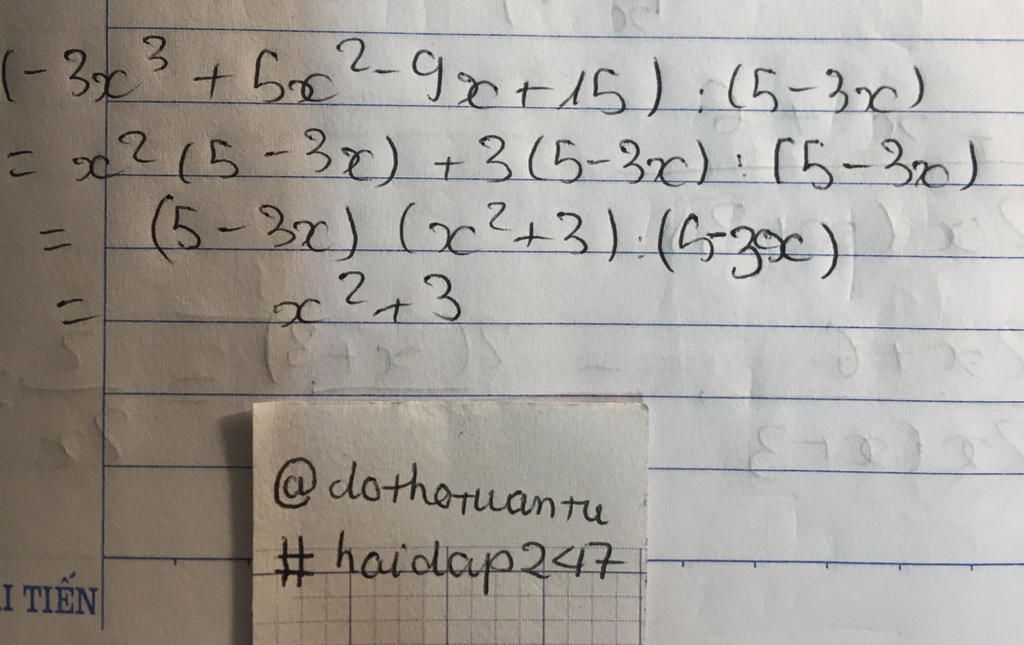 (-3x³ + 5x² - 9x + 15) : (5 - 3x)
= x² (5 - 3x) + 3 (5 - 3x) : (5 - 3x)
= (5 - 3x) (x² + 3) : (5 - 3x)
= x² + 3
@dothotuantu
#haidap247
I TIẾN